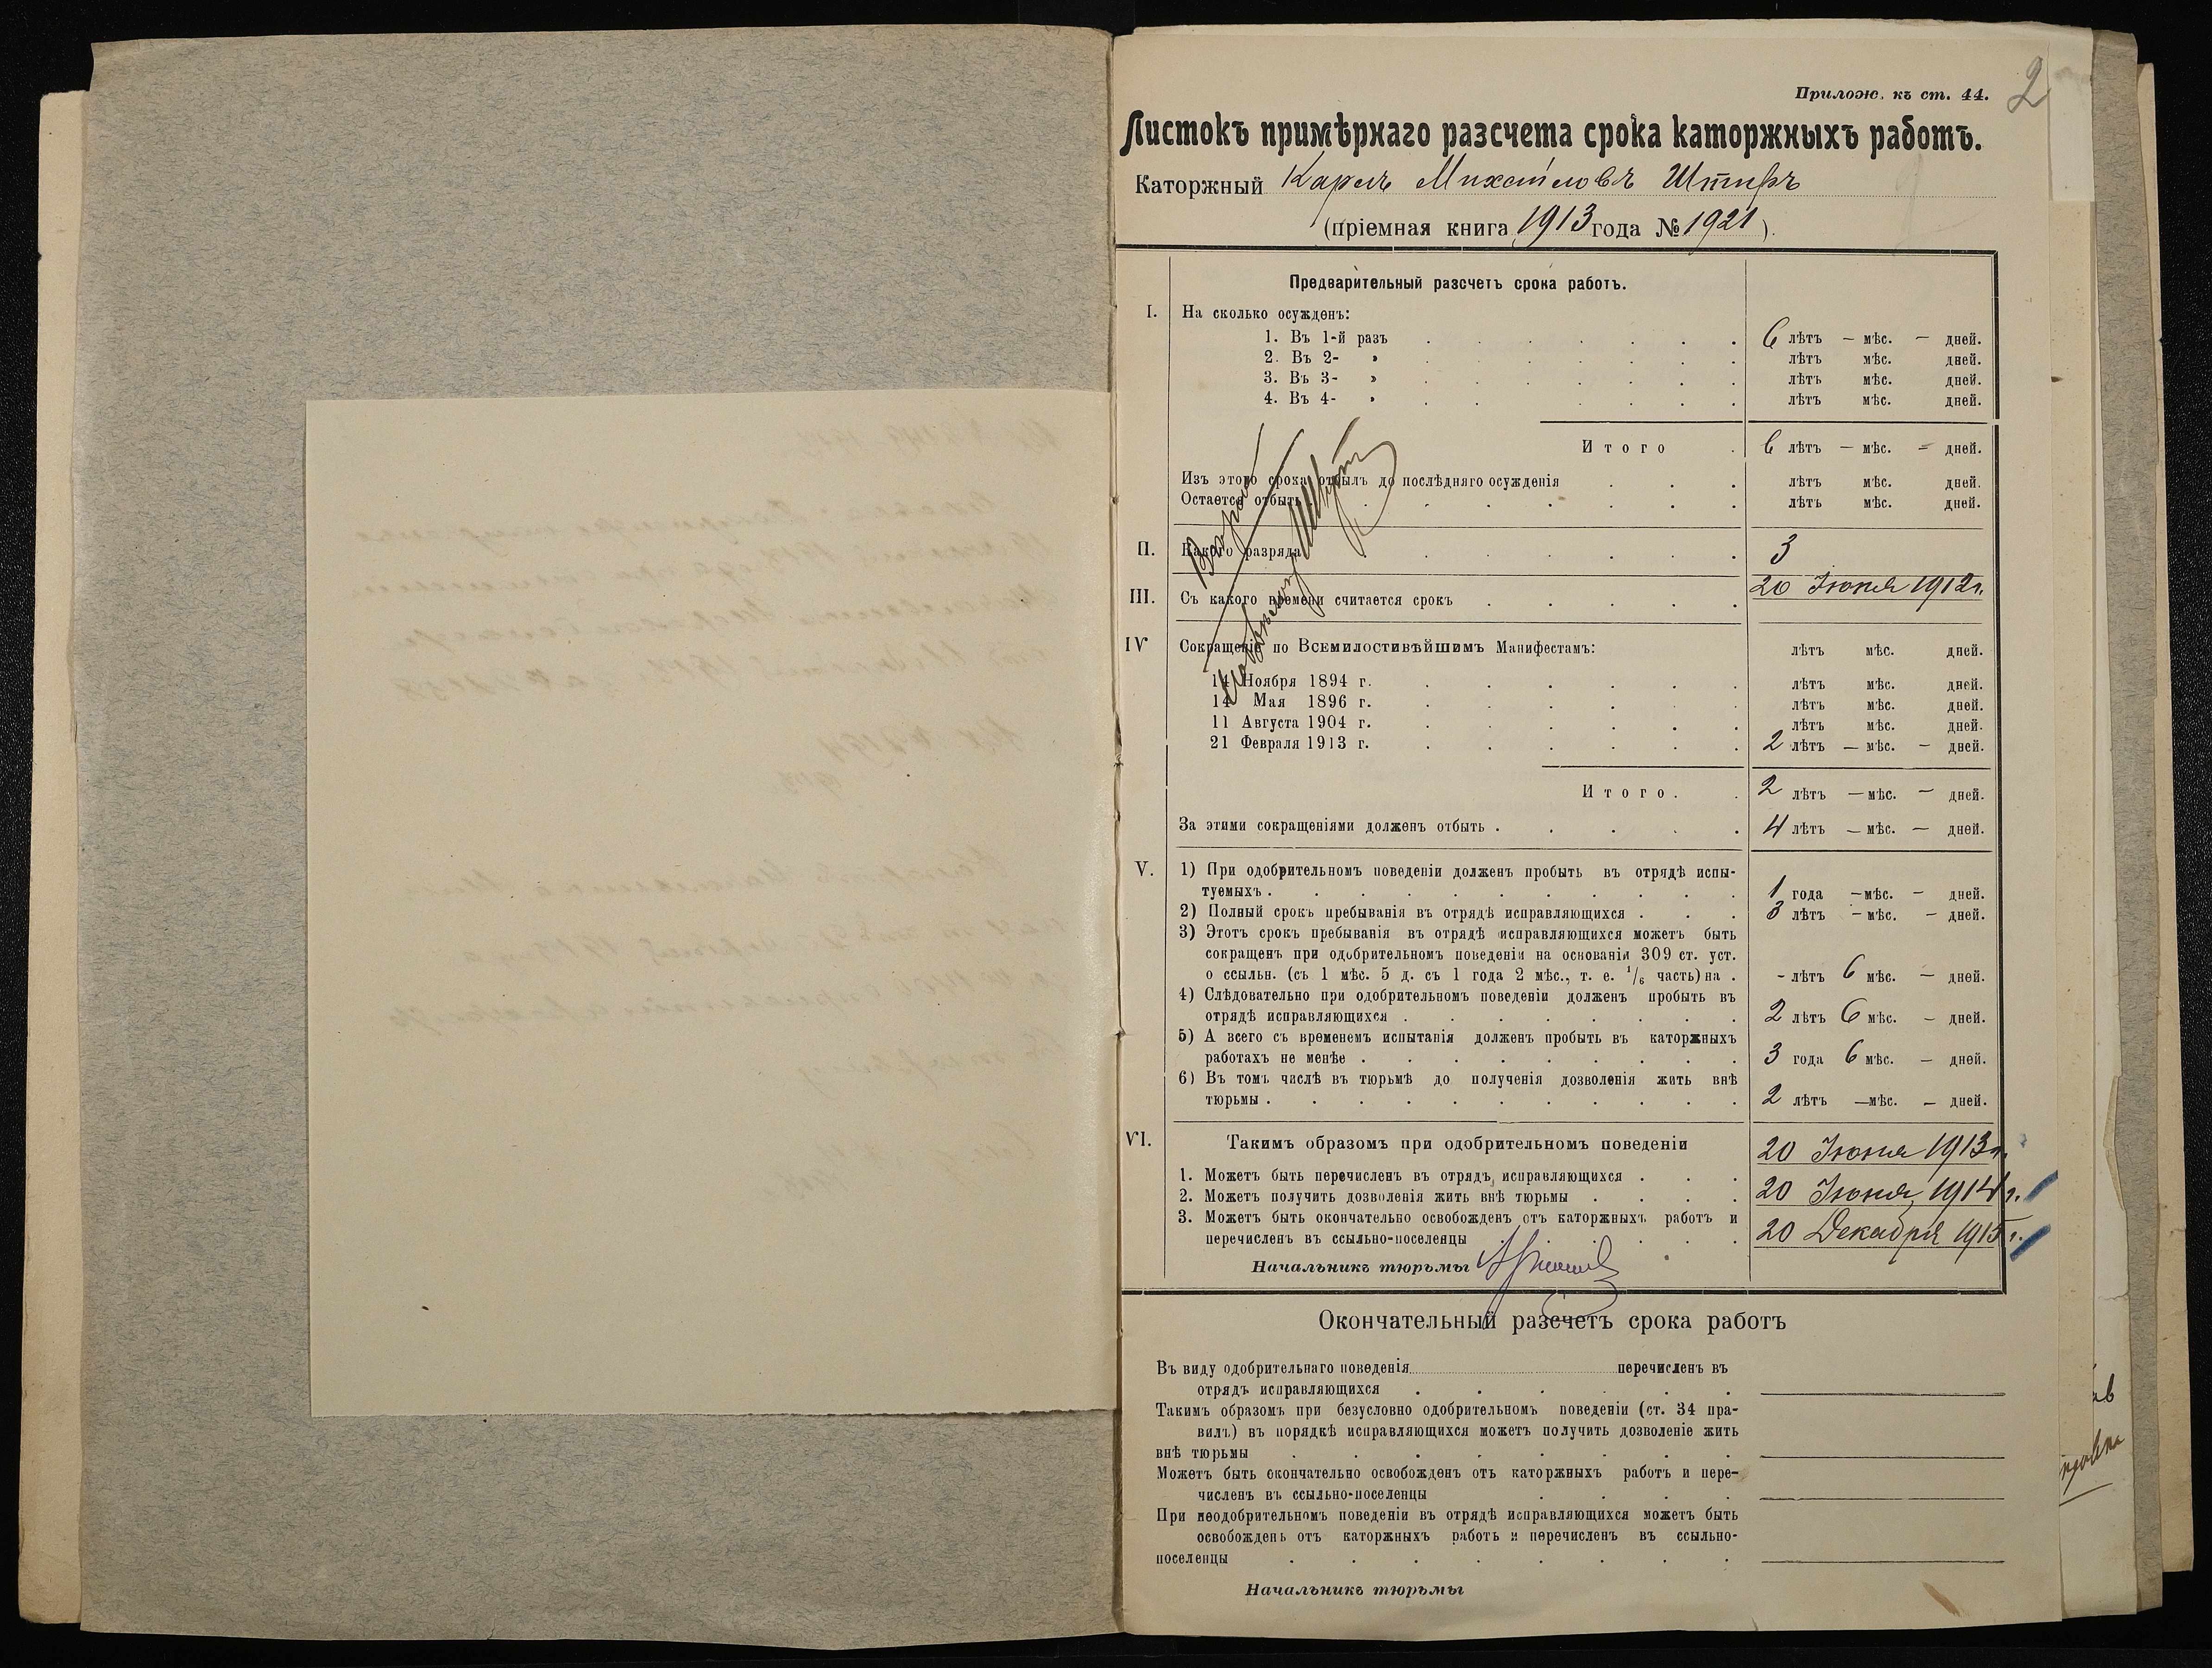 Прилож. къ ст. 44.
2
Листокъ примѣрнаго разсчета срока каторжныхъ работъ.
Каторжный Карлъ Михайловъ Штифъ
(пріемная книга 1913 года № 1921).
Предварительный разсчетъ срока работъ.
I. На сколько осужденъ:
1. Въ 1-й разъ . . . . . . . 6 лѣтъ — мѣс. — дней.
2. Въ 2- » лѣтъ мѣс. дней.
3. Въ 3- » . . . . . . . лѣтъ мѣс. дней.
4. Въ 4- » . . . . . . лѣтъ мѣс. дней.
Итого . 6 лѣтъ — мѣс. — дней.
Изъ этого срока отбылъ до послѣдняго осужденія . . . лѣтъ мѣс. дней.
Остается отбыть . . . . . . . лѣтъ мѣс. дней.
II. Какого разряда . . . . . . 3
III. Съ какого времени считается срокъ . . . . . 20 Іюня 1912 г.
IV Сокращеніе по Всемилостивѣйшимъ Манифестамъ: лѣтъ мѣс. дней.
14 Ноября 1894 г. . . . . . . лѣтъ мѣс. дней.
14 Мая 1896 г. . . . . . . лѣтъ мѣс. дней.
11 Августа 1904 г. . . . . . . лѣтъ мѣс. дней.
21 Февраля 1913 г. . . . . . . 2 лѣтъ — мѣс. — дней.
Итого. . 2 лѣтъ — мѣс. — дней.
За этими сокращеніями долженъ отбыть . . . . . 4 лѣтъ — мѣс. — дней.
V. 1) При одобрительномъ поведеніи долженъ пробыть въ отрядѣ испы-
туемыхъ . . . . . . . . . . 1 года — мѣс. — дней.
2) Полный срокъ пребыванія въ отрядѣ исправляющихся . . . 3 лѣтъ — мѣс. — дней.
3) Этотъ срокъ пребыванія въ отрядѣ исправляющихся можетъ быть
сокращенъ при одобрительномъ поведеніи на основаніи 309 ст. уст.
о ссыльн. (съ 1 мѣс. 5 д. съ 1 года 2 мѣс., т. е. 1/6 часть) на . - лѣтъ 6 мѣс. — дней.
4) Слѣдовательно при одобрительномъ поведеніи долженъ пробыть въ
отрядѣ исправляющихся . . . . . . . . 2 лѣтъ 6 мѣс. — дней.
5) А всего съ временемъ испытанія долженъ пробыть въ каторжныхъ
работахъ не менѣе . . . . . . . . . 3 года 6 мѣс. — дней.
6) Въ томъ числѣ въ тюрьмѣ до полученія дозволенія жить внѣ
тюрьмы . . . . . . . . . . . 2 лѣтъ — мѣс. — дней.
VI. Такимъ образомъ при одобрительномъ поведеніи
1. Можетъ быть перечисленъ въ отрядъ исправляющихся . . . 20 Іюня 1913 г.
2. Можетъ получить дозволенія жить внѣ тюрьмы . . . . 20 Іюня 1914 г.
3. Можетъ быть окончательно освобожденъ отъ каторжныхъ работъ и
перечисленъ въ ссыльно-поселенцы . . . . 20 Декабря 1915 г.
Начальникъ тюрьмы
Окончательный разсчетъ срока работъ
Въ виду одобрительнаго поведенія перечисленъ въ
отрядъ исправляющихся . . . . . .
Такимъ образомъ при безусловно одобрительномъ поведеніи (ст. 34 пра-
вилъ) въ порядкѣ исправляющихся можетъ получить дозволеніе жить
внѣ тюрьмы . . . . . . . .
Можетъ быть окончательно освобожденъ отъ каторжныхъ работъ и пере-
численъ въ ссыльно-поселенцы . . . .
При неодобрительномъ поведеніи въ отрядѣ исправляющихся можетъ быть
освобожденъ отъ каторжныхъ работъ и перечисленъ въ ссыльно-
поселенцы . . . . . . . .
Начальникъ тюрьмы